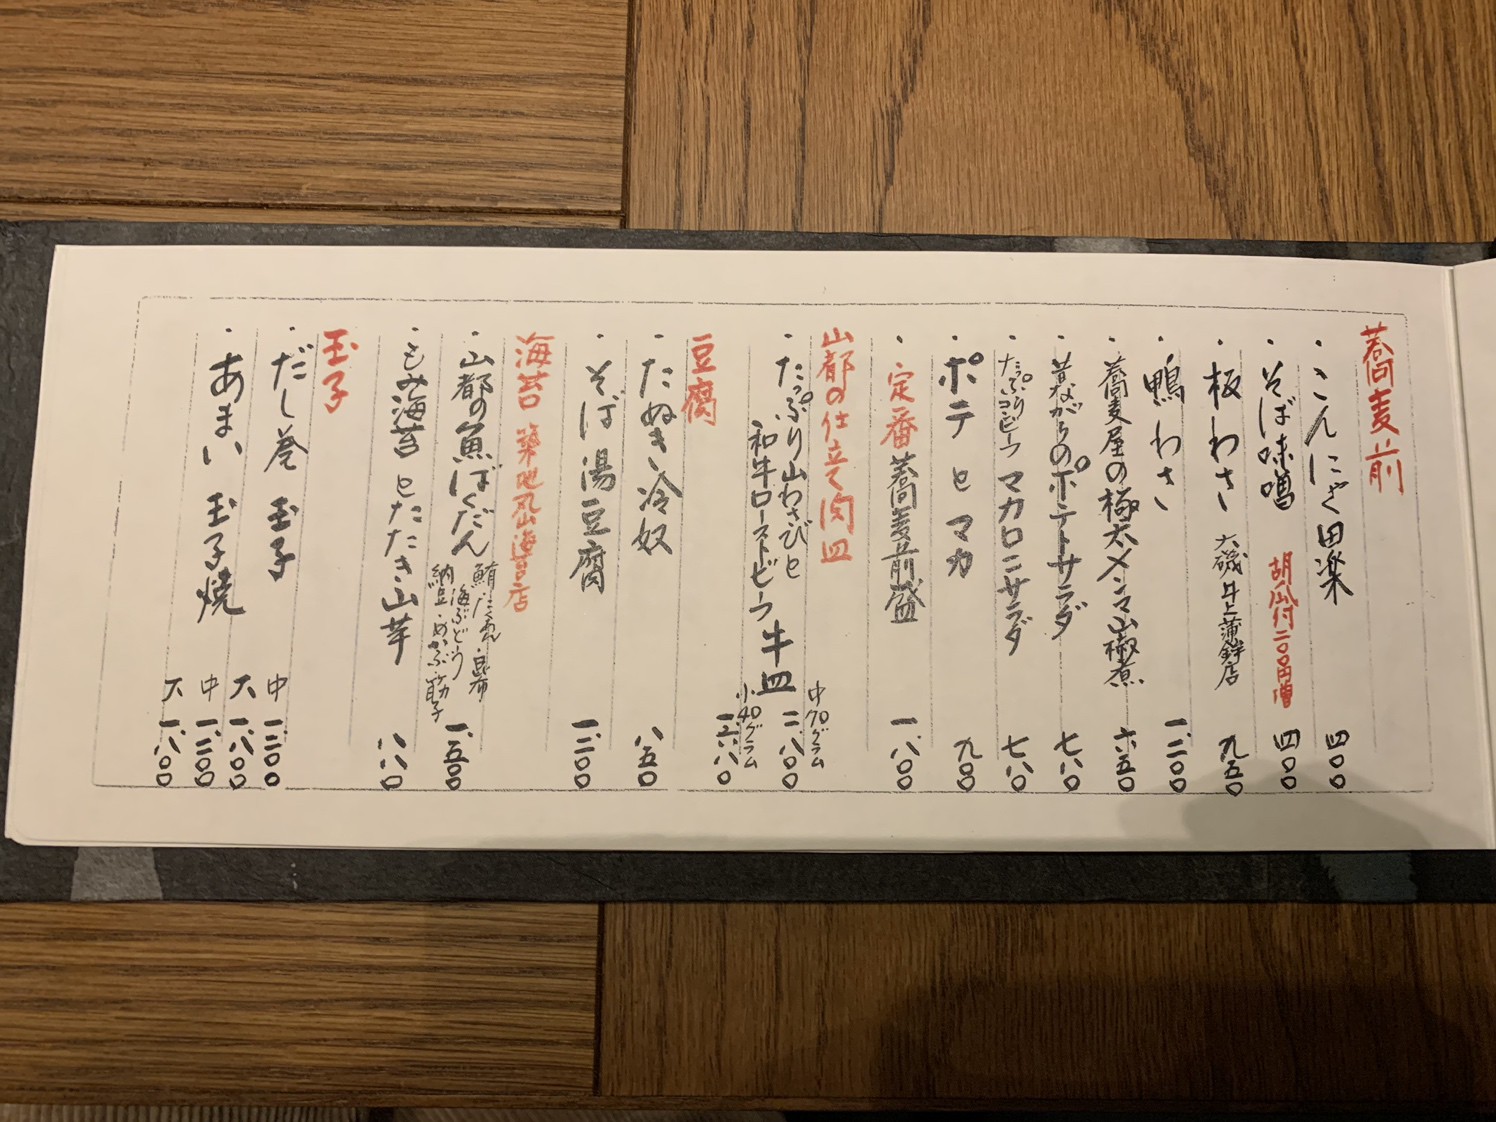 蕎麦前
・こんにゃく田楽 四〇〇
・そば味噌 胡瓜付二〇〇円増 四〇〇
・板わさ 大磯 井上蒲鉾店 九五〇
・鴨わさ 一、二〇〇
・蕎麦屋の極太メンマ山椒煮 六五〇
・昔ながらのポテトサラダ 七八〇
・たっぷりコンビーフ マカロニサラダ 七八〇
・ポテとマカ 九〇〇
・定番蕎麦前盛 一、八〇〇
山都の仕立て肉皿
・たっぷり山わさびと
和牛ローストビーフ 牛皿
中70グラム 二、八〇〇
小40グラム 一、六八〇
豆腐
・たぬき冷奴 八五〇
・そば湯豆腐 一、二〇〇
海苔 築地丸山海苔店
・山都の魚ばくだん 鮪たくあん・昆布
海ぶどう
納豆・めかぶ・筋子 一、五〇〇
・もみ海苔とたたき山芋 八八〇
玉子
・だし巻玉子 中 一、二〇〇
大 一、八〇〇
・あまい玉子焼 中 一、二〇〇
大 一、八〇〇